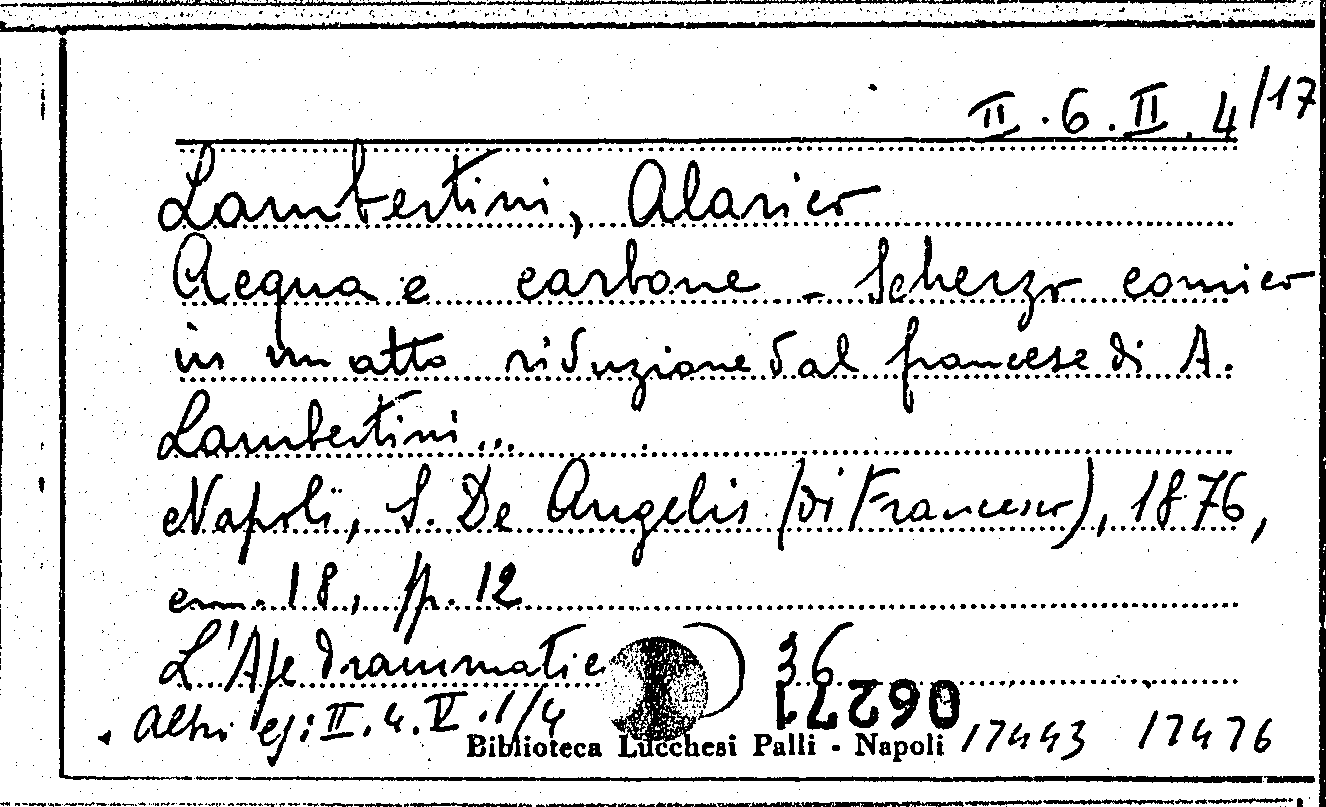 II.6.II.4/17
Lambertini, Alarico
Acqua e carbone - Scherzo comico
in un atto riduzione dal francese di A.
Lambertini...
Napoli, S. De Angelis (di Francesco), 1876,
cm. 18, pp. 12
L'Ape drammatic ) 36
06271
Altri es: II.4.V.1/4
Biblioteca Lucchesi Palli - Napoli 17443 17476